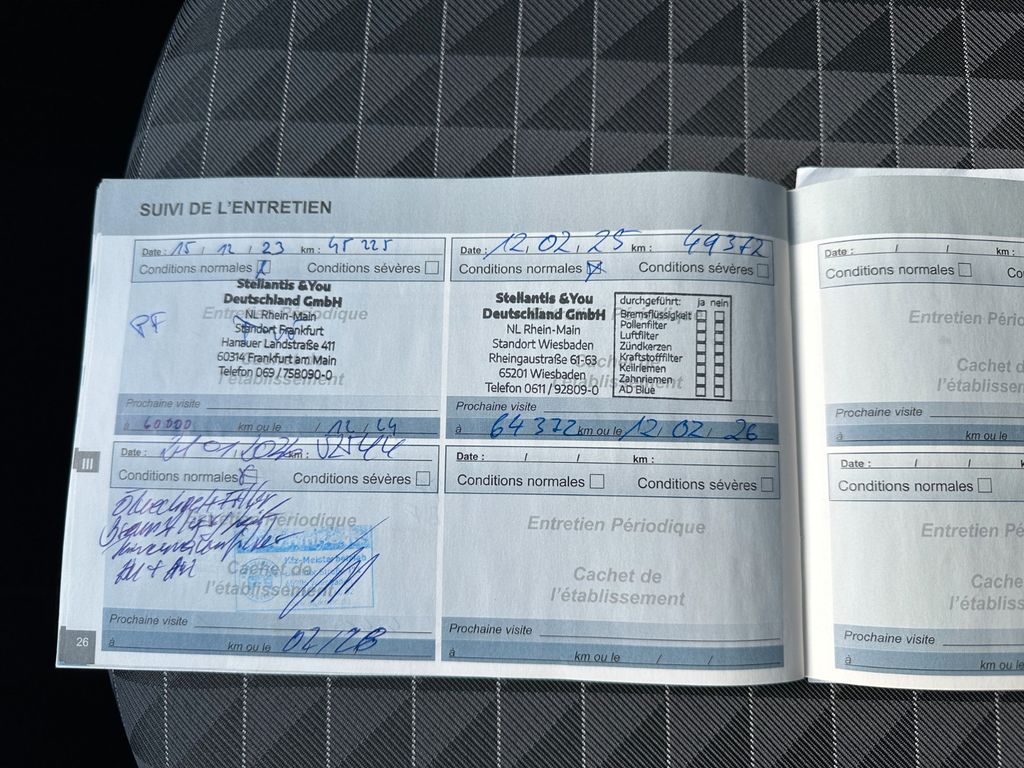 SUIVI DE L'ENTRETIEN
Date : 15 / 12 / 23 km : 45 225
Conditions normales Conditions sévères
Entretien Périodique
Stellantis &You
Deutschland GmbH
NL Rhein-Main
Standort Frankfurt
Hanauer Landstraße 411
60314 Frankfurt am Main
Telefon 069 / 758090-0
PF
Cachet de
l'établissement
Prochaine visite
à 60000 km ou le / 12 / 24
Date : 12, 02, 25 km : 49372
Conditions normales Conditions sévères
Entretien Périodique
Stellantis &You
Deutschland GmbH
NL Rhein-Main
Standort Wiesbaden
Rheingaustraße 61-63
65201 Wiesbaden
Telefon 0611 / 92809-0
durchgeführt: ja nein
Bremsflüssigkeit
Pollenfilter
Luftfilter
Zündkerzen
Kraftstofffilter
Keilriemen
Zahnriemen
AD Blue
Cachet de
l'établissement
Prochaine visite
à 64 372 km ou le 12, 02, 26
III
Date : km : 52544
Conditions normales Conditions sévères
Entretien Périodique
Kfz-Meisterbetrieb
Cachet de
l'établissement
Prochaine visite
à km ou le
26
Date : / / km :
Conditions normales Conditions sévères
Entretien Périodique
Cachet de
l'établissement
Prochaine visite
à km ou le / /
Date : / / km :
Conditions normales
Entretien Pério
Cachet
l'établiss
Prochaine visite
à km ou le
Date : / / km :
Conditions normales
Entretien Pé
Cache
l'établiss
Prochaine visite
à km ou le